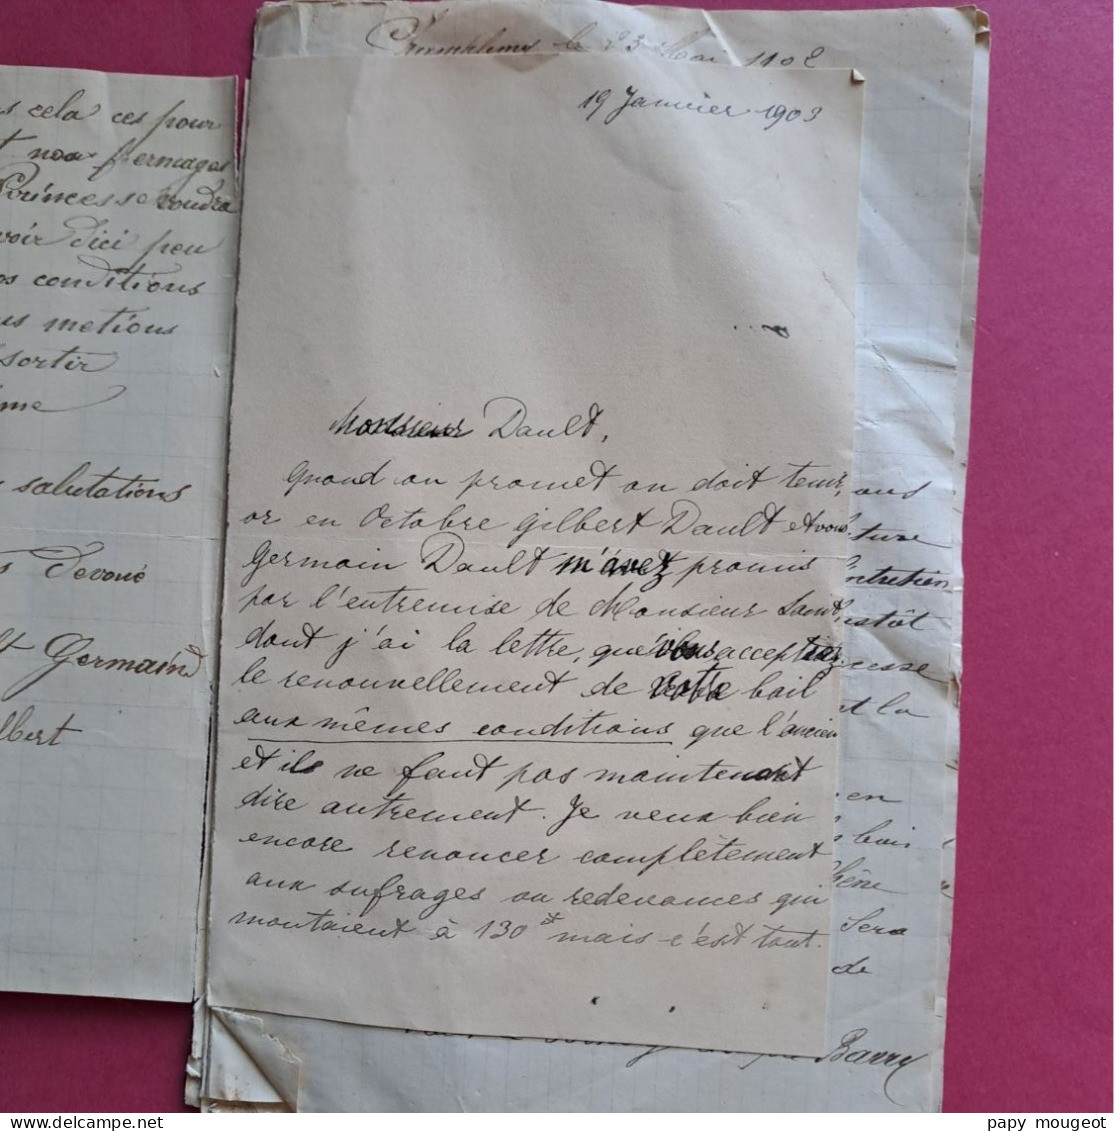 s cela ces pour
t nos fermages
Princesse voudra
voir dici peu
os conditions
us metions
sortir
ime
salutations
Devoué
lt Germain
lbert
le 23 Mai 1902
19 Janvier 1903
Monsieur Dault,
Quand on promet on doit tenir,
or en Octobre Gilbert Dault et vous
Germain Dault m'avez promis
par l'entremise de Monsieur Samt,
dont j'ai la lettre, que vous acceptiez
le renouvellement de votre bail
aux mêmes conditions que l'ancien
et il ne faut pas maintenant
dire autrement. Je veux bien
encore renoncer complètement
aux sufrages ou redevances qui
montaient à 130 ff mais c'est tout.
ous
ture
entretien
stôt
cesse
et la
en
bois
chêne
Sera
de
Barry
papy mougeot